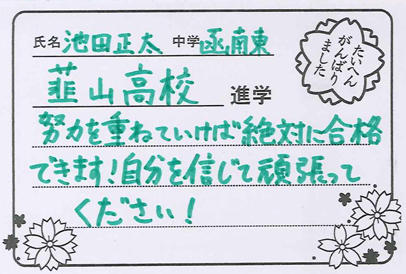 氏名 池田正太 中学 函南東
たいへん
がんばり
ました
韮山高校 進学
努力を重ねていけば絶対に合格
できます!自分を信じて頑張って
ください!